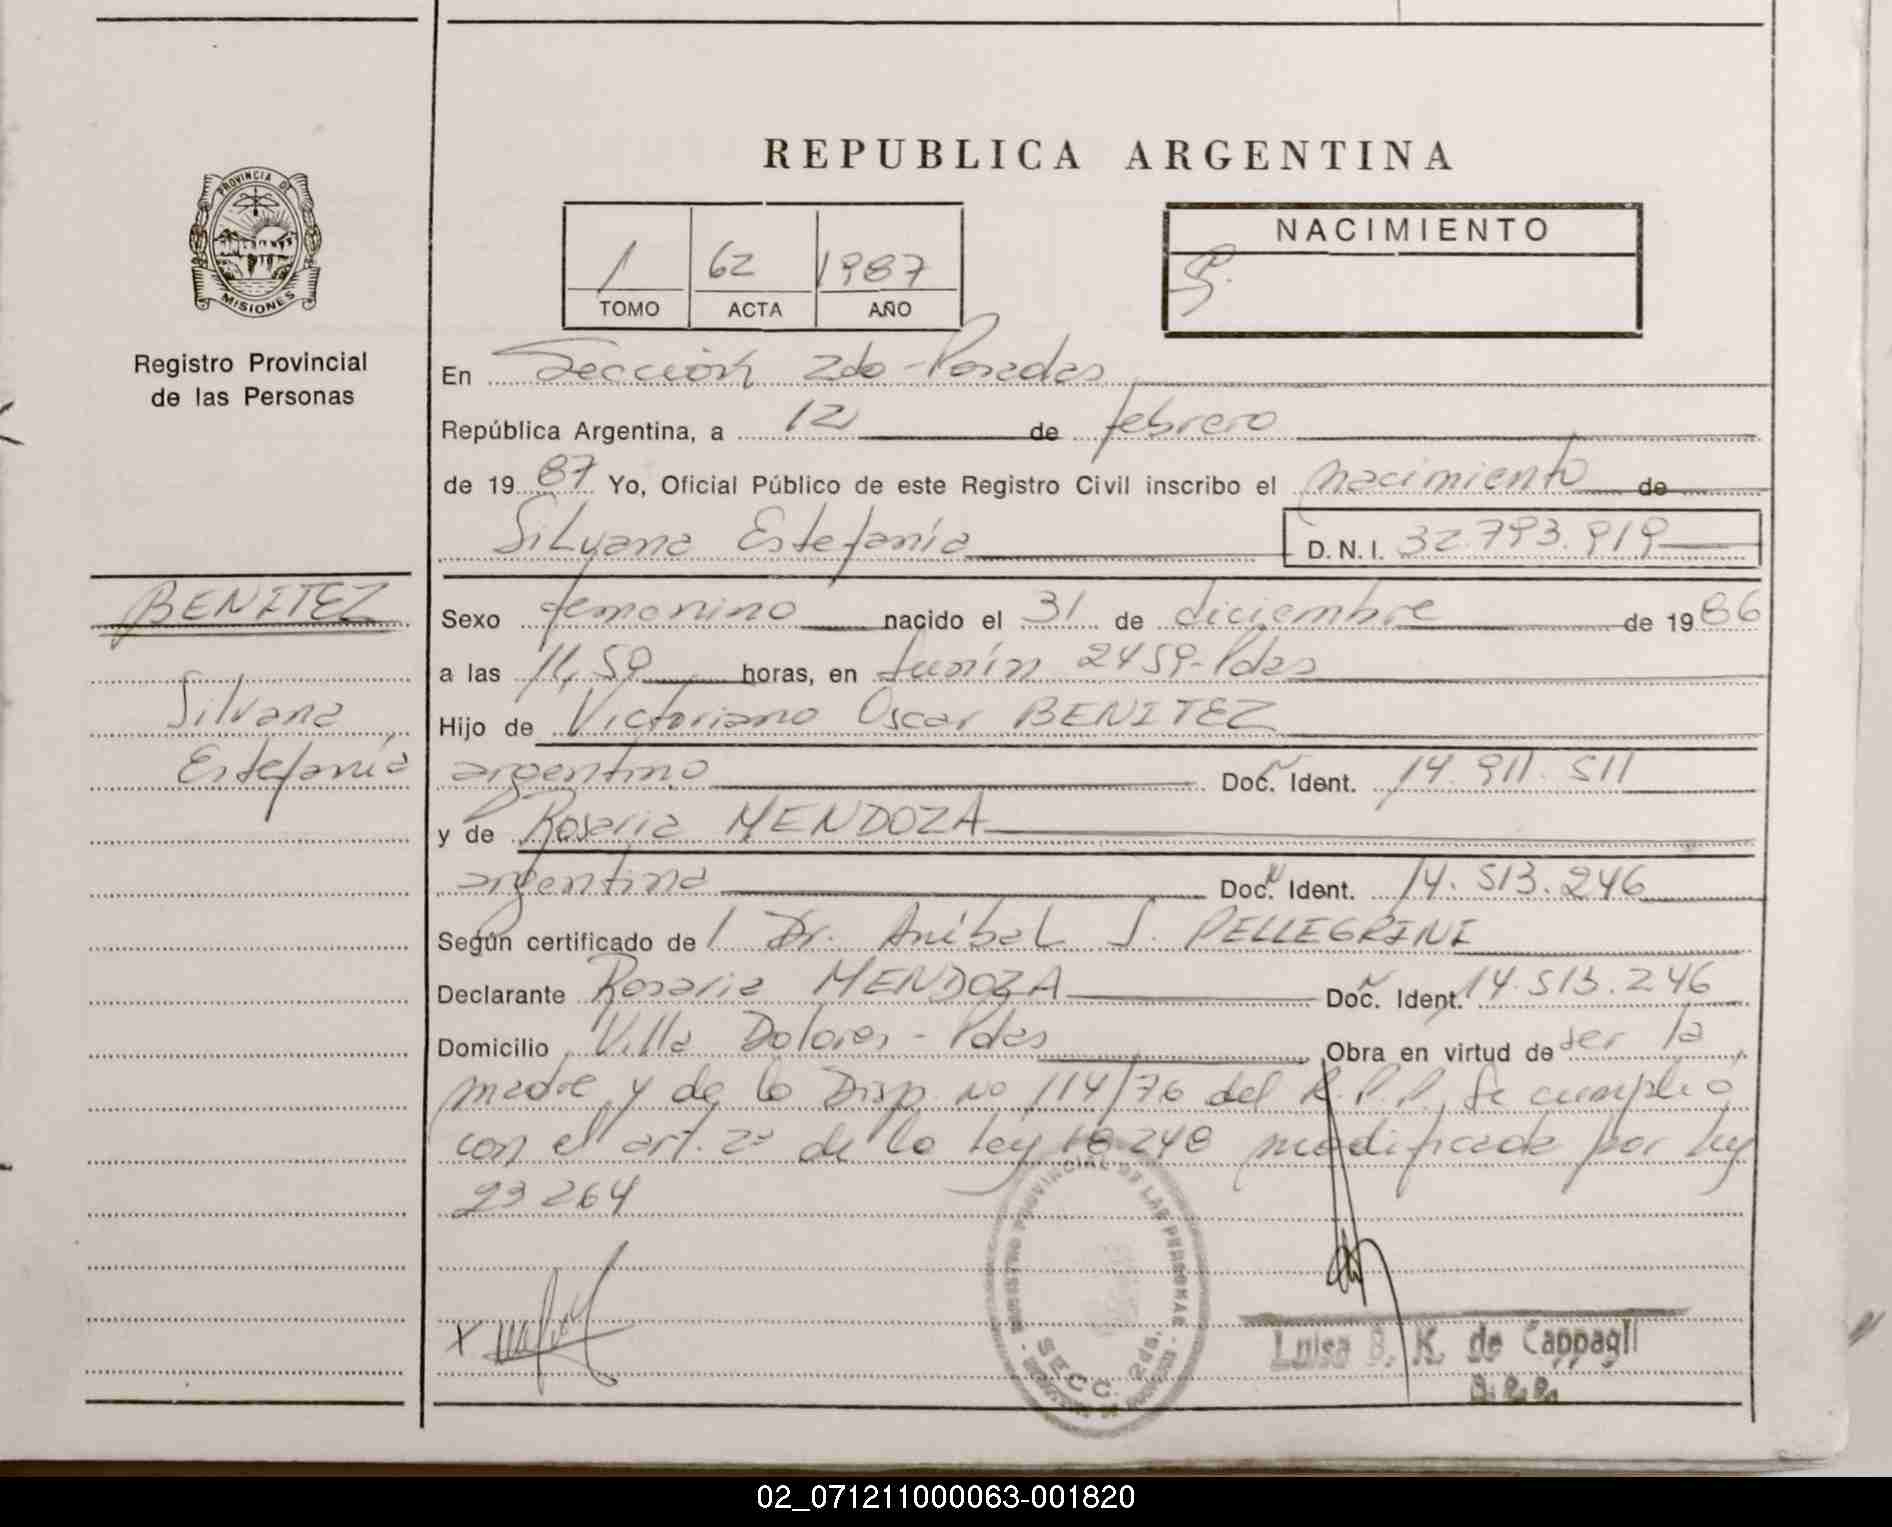 REPUBLICA ARGENTINA
PROVINCIA DE
MISIONES
Registro Provincial
de las Personas
1 62 1987
TOMO ACTA AÑO
NACIMIENTO
En Sección 2da - Posadas
República Argentina, a 12 de febrero
de 1987 Yo, Oficial Público de este Registro Civil inscribo el nacimiento de
Silvana Estefanía D.N.I. 32.793.919
BENITEZ
Silvana
Estefanía
Sexo femenino nacido el 31 de diciembre de 1986
a las 11,50 horas, en Junín 2459-Pdas
Hijo de Victoriano Oscar BENITEZ
argentino Doc. Ident. 14.911.511
y de Rosaria MENDOZA
argentina Doc. Ident. 14.513.246
Según certificado de Dr. Aníbal J. PELLEGRINI
Declarante Rosaria MENDOZA Doc. Ident. 14.513.246
Domicilio Villa Dolores - Pdas Obra en virtud de ser la
madre y de la Disp. No 114/76 del R.P.P. Se cumplió
con el art. 2º de la Ley 18248 modificada por Ley
23264
REGISTRO PROVINCIAL DE LAS PERSONAS
SECC. 2da.
Luisa B. K. de Cappagli
02_071211000063-001820